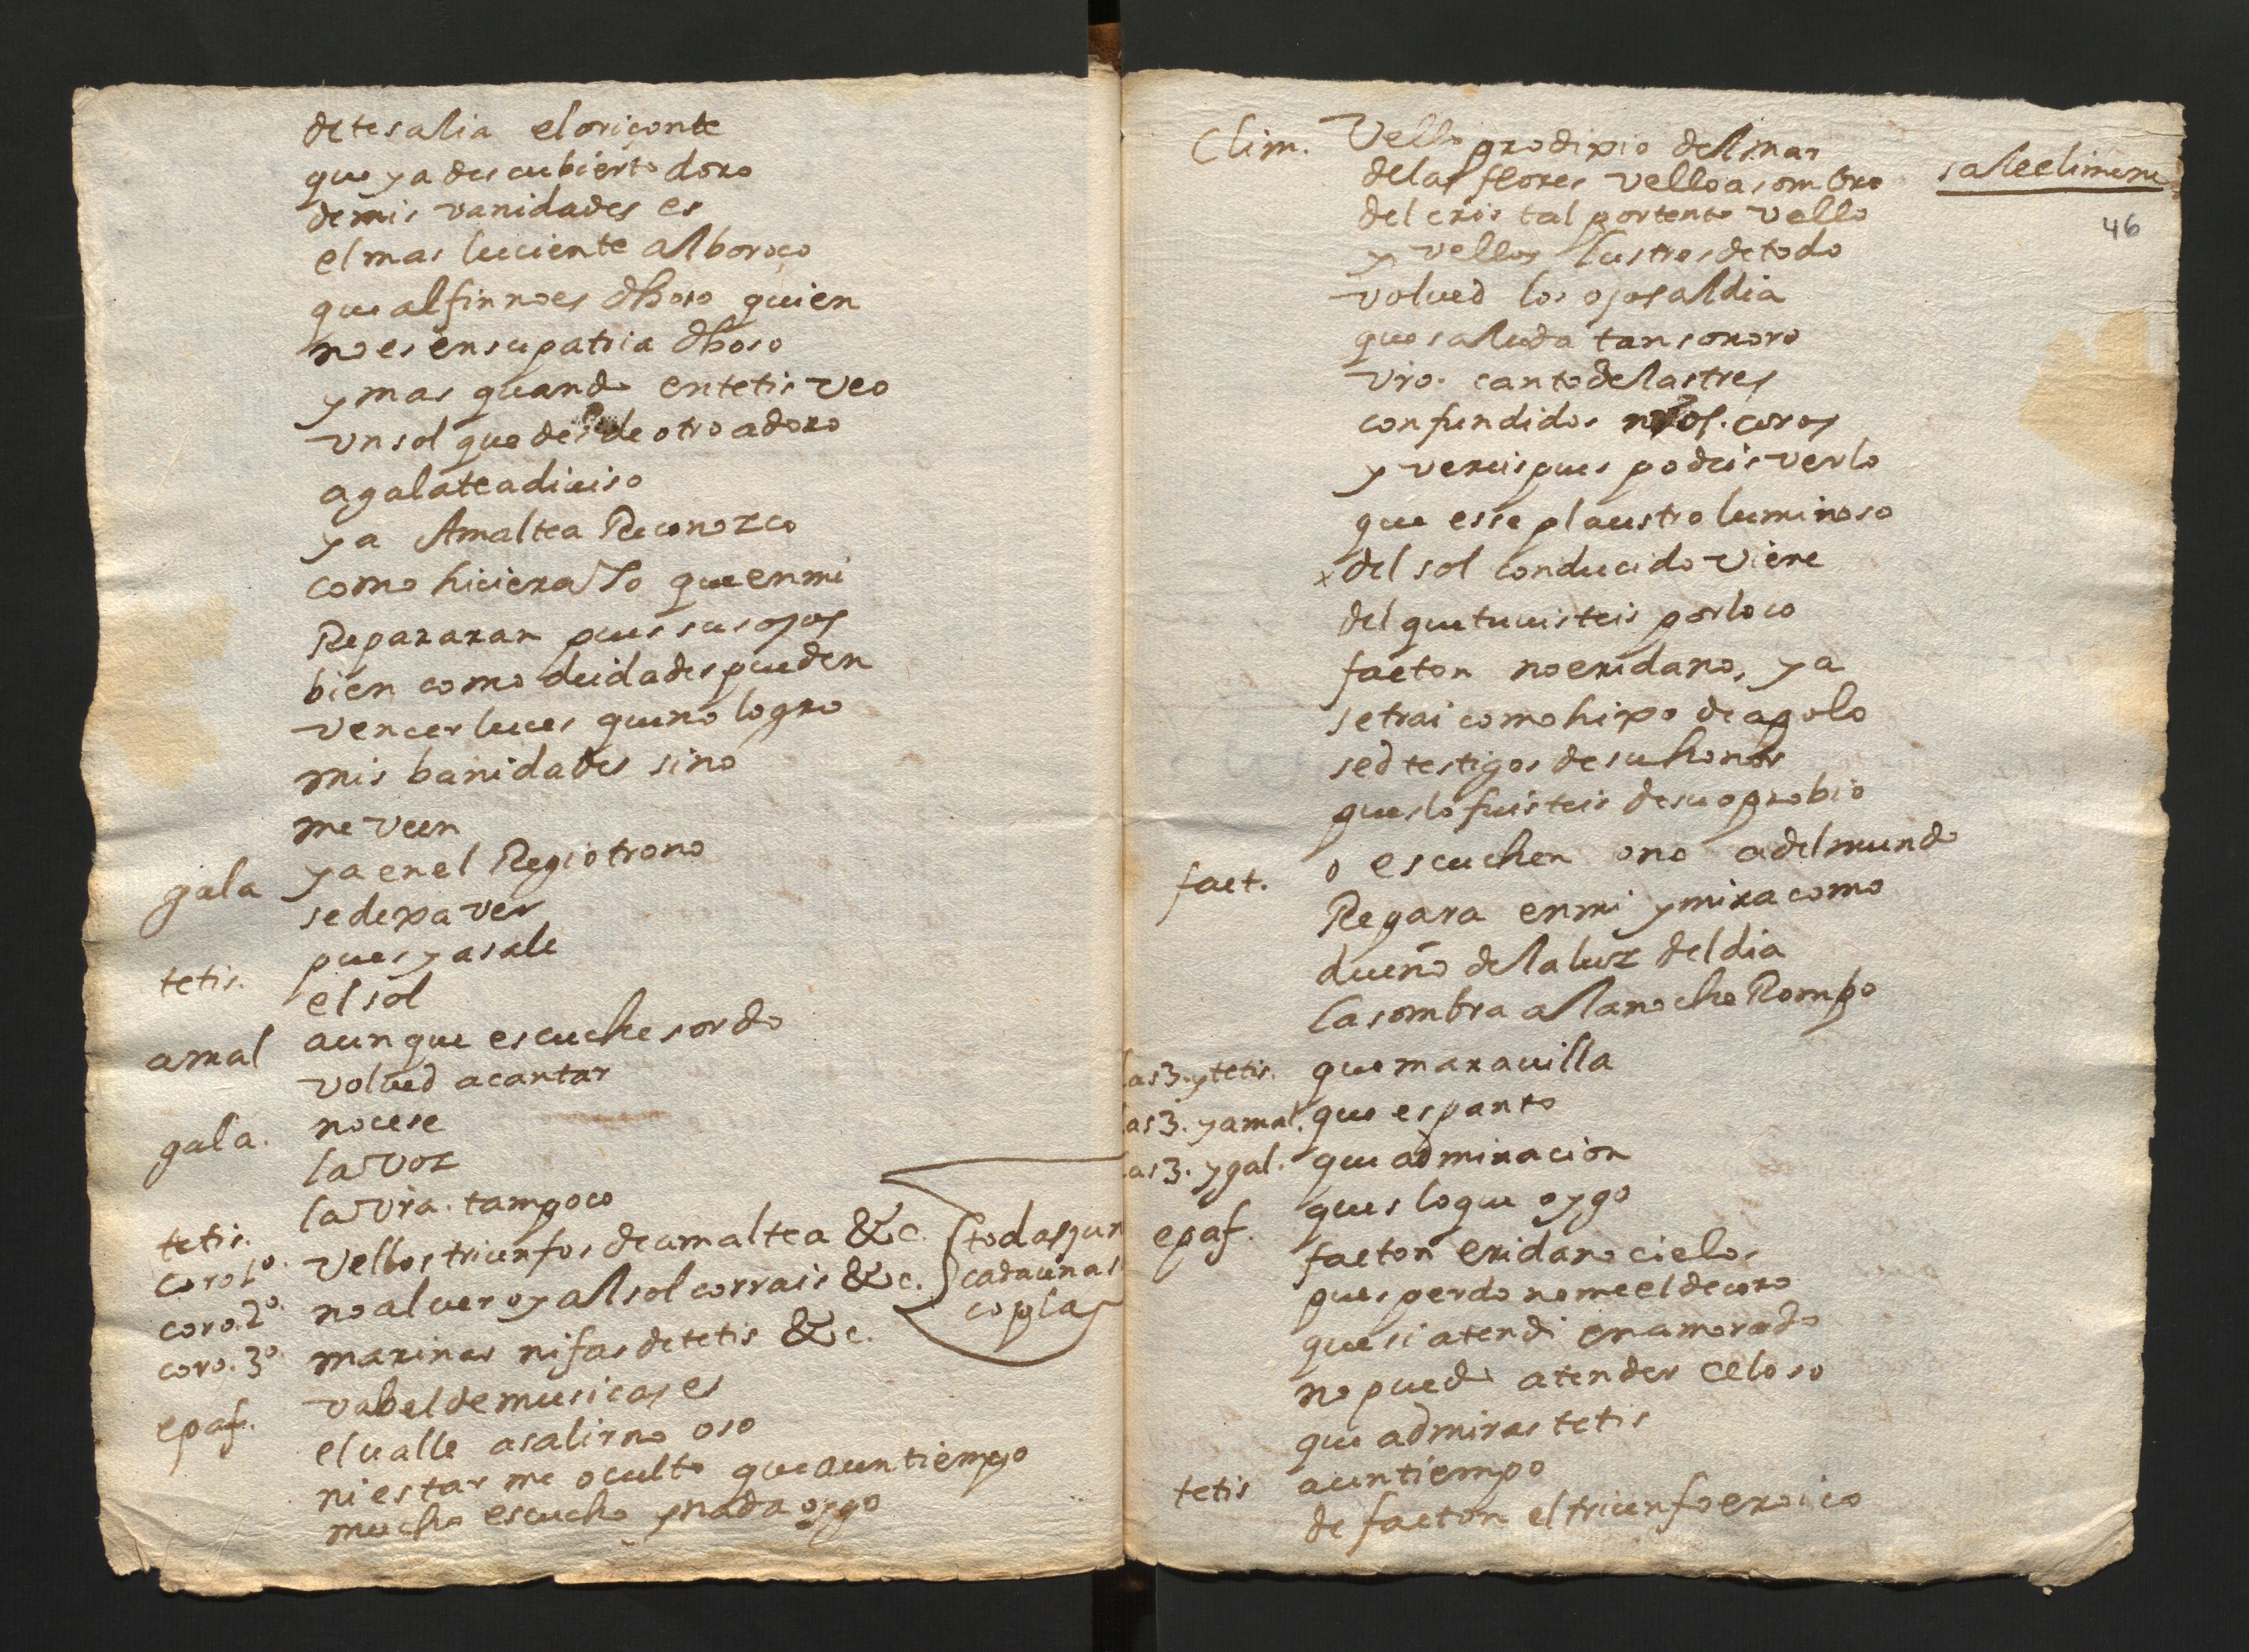 detesalia eloriçonte
que ya descubierto doro
de mis vanidades es
el mas luciente alboroço
que alfin noes dhoso quien
no es ensupatria dhoso
y mas quando entetis veo
vnsol que desde otro adoro
agalatea diuiso
ya Amaltea Reconozco
como hiciera lo que enmi
Repararan pues sus ojos
bien como deidades pueden
vencer luces que no logro
mis banidades sino
me veen
gala ya en el Regio trono
sedexa ver
tetis. pues ya sale
el sol
amal aunque escuche sordo
volued acantar
gala. nocese
la voz
tetis. la vra. tampoco
coro 1º. vellos triunfos de amaltea &c.
coro. 2º. no al ver oy al sol corrais &c.
coro. 3º. marinas nifas de tetis &c.
todas jun
cada una s
coplas
epaf. vabel de musicas es
el valle asalir no oso
ni estar me oculto que aun tiempo
mucho escucho y nada oygo
sale climene
46
Clim. Vello prodixio del mar
delas flores vello asombro
del cristal portento vello
y vellos lustres de todo
volued los ojos al dia
que saluda tan sonoro
vro. canto de las tres
confundidos nros. coros
y vereis pues podeis verlo
que esse plaustro luminoso
x del sol conducido viene
del que tuuisteis por loco
faeton no eridano, ya
se trai como hixo de apolo
sed testigos de su honor
pues lo fuisteis de su oprobio
faet. o escuchen o no a del mundo
Repara en mi y mira como
dueño dela luz del dia
la sombra ala noche Rompo
las 3. y tetis. que marauilla
las 3. y amal. que espanto
las 3. y gal. que admiracion
epaf. ques lo que oygo
faeton eridano cielos
pues perdoname el decoro
que si atendi enamorado
no puedo atender celoso
que admiras tetis
tetis aun tiempo
de faeton el triunfo eroico